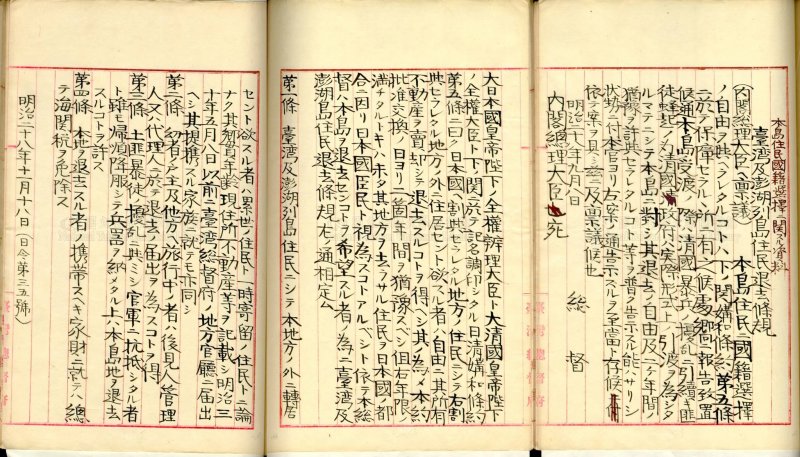 本島住民國籍選擇ニ関スル資料
臺湾及澎湖列島住民退去條規
内閣総理大臣ヘ禀議 本島住民ニ國籍選擇
ノ自由ヲ與ヘラレタルコトハ下ノ関媾和條約第五條
ニ於テ保障セラレタル所ニ有之候處郷ニ報告致置
候通本島受渡ノ際ハ清國暴兵ノ擾乱ニ引續キ匪
徒蜂起ノ為清國政府ハ実際形式上ノ引渡ヲ為シタ
ルマテニシテ本島ニ對シ其退去ノ自由及二ケ年間ノ
猶豫ヲ許セラレタルコト等ヲ普ク告示スル能ハサリシ
状勢ニ付本官ヨリ右案ノ通告示スルヲ至當ト存候
依テ案ヲ具シ及禀議候也
明治廿八年九月日
總督
内閣總理大臣宛
大日本國皇帝陛下ノ全權辨理大臣ト大清國皇帝陛下
ノ全權大臣ト下ノ関ニ於テ記名調印シタル日清媾和條約
第五條ニ曰ク日本國ヘ割與セラレタル地方ノ住民ニシテ右割
與セラレタル地方ノ外ニ住居セント欲スル者ハ自由ニ其所有
不動産ヲ賣却シテ退去スルコトヲ得ヘシ其為メ本約
批准交換ノ日ヨリ二箇年間ヲ猶豫スヘシ但右年限ノ
満チタルトキハ未タ其地方ヲ去ラサル住民ヲ日本國ノ都
合ニ因リ日本國臣民ト視為スコトアルヘシト依テ本総
督ハ本島ヲ退去センコトヲ希望スル者ノ為ニ臺湾及
澎湖島住民退去條規左ノ通相定ム
第一條 臺湾及澎湖列島住民ニシテ本地方ノ外ニ轉居
セント欲スル者ハ累世ノ住民ト一時寄留ノ住民トニ論
ナク其郷貫年齢現住所不動産等ヲ記載シ明治三
十年五月八日以前ニ臺湾総督府ノ地方官廳ニ届出
ヘシ其提携スル家族ニ就テモ亦同シ
第二條 幼者ノ戸主及他方ヘ旅行中ノ者ハ後見人管理
人又ハ代理人ニ於テ退去ノ届出ヲ為スコトヲ得
第三條 土匪暴徒ノ擾乱ニ與ミシ官軍ニ抗抵シタル者
ト雖モ帰順降服シテ兵器ヲ納メタル上ハ本島地ヲ退去
スルコトヲ許ス
第四條 本地ヲ退去スル者ノ携帯スヘキ家財ニ就テハ總
テ海関税ヲ免除ス
明治二十八年十一月十八日（日令第三五號）
臺灣總督府
臺灣總督府